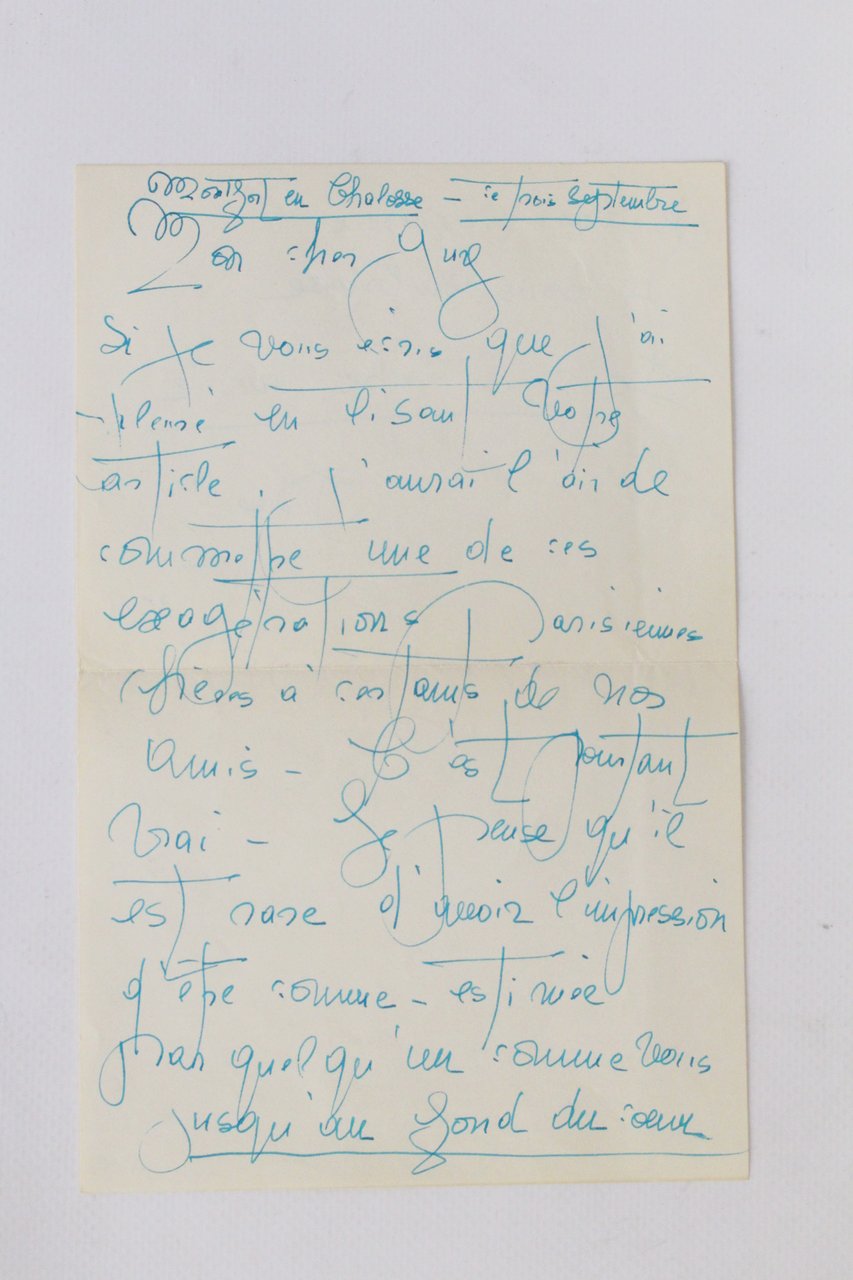 Montfort en Chalosse - ce trois Septembre
Mon cher Guy
Si Je vous écris que j'ai
pleuré en lisant Votre
article, j'aurai l'air de
commettre une de ces
exagérations Parisiennes
chères à certains de nos
Amis - C'est pourtant
Vrai - Je pense qu'il
est rare d'avoir l'impression
d'être comme - estimée
par quelqu'un comme Vous
jusqu'au fond du cœur